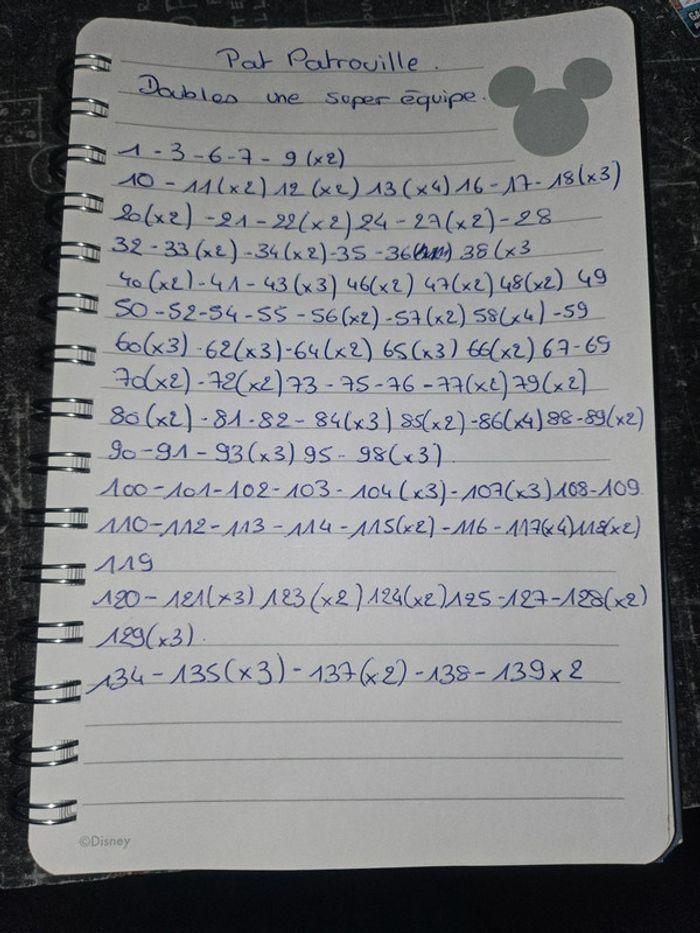 Pat Patrouille.
Doubles une super équipe.
1 - 3 - 6 - 7 - 9 (x2)
10 - 11 (x2) 12 (x2) 13 (x4) 16 - 17 - 18 (x3)
20 (x2) - 21 - 22 (x2) 24 - 27 (x2) - 28
32 - 33 (x2) - 34 (x2) - 35 - 36 38 (x3
40 (x2) - 41 - 43 (x3) 46 (x2) 47 (x2) 48 (x2) 49
50 - 52 - 54 - 55 - 56 (x2) - 57 (x2) 58 (x4) - 59
60 (x3) - 62 (x3) - 64 (x2) 65 (x3) 66 (x2) 67 - 69
70 (x2) - 72 (x2) 73 - 75 - 76 - 77 (x2) 79 (x2)
80 (x2) - 81 - 82 - 84 (x3) 85 (x2) - 86 (x4) 88 - 89 (x2)
90 - 91 - 93 (x3) 95 - 98 (x3)
100 - 101 - 102 - 103 - 104 (x3) - 107 (x3) 108 - 109
110 - 112 - 113 - 114 - 115 (x2) - 116 - 117 (x4) 118 (x2)
119
120 - 121 (x3) 123 (x2) 124 (x2) 125 - 127 - 128 (x2)
129 (x3).
134 - 135 (x3) - 137 (x2) - 138 - 139 x 2
©Disney